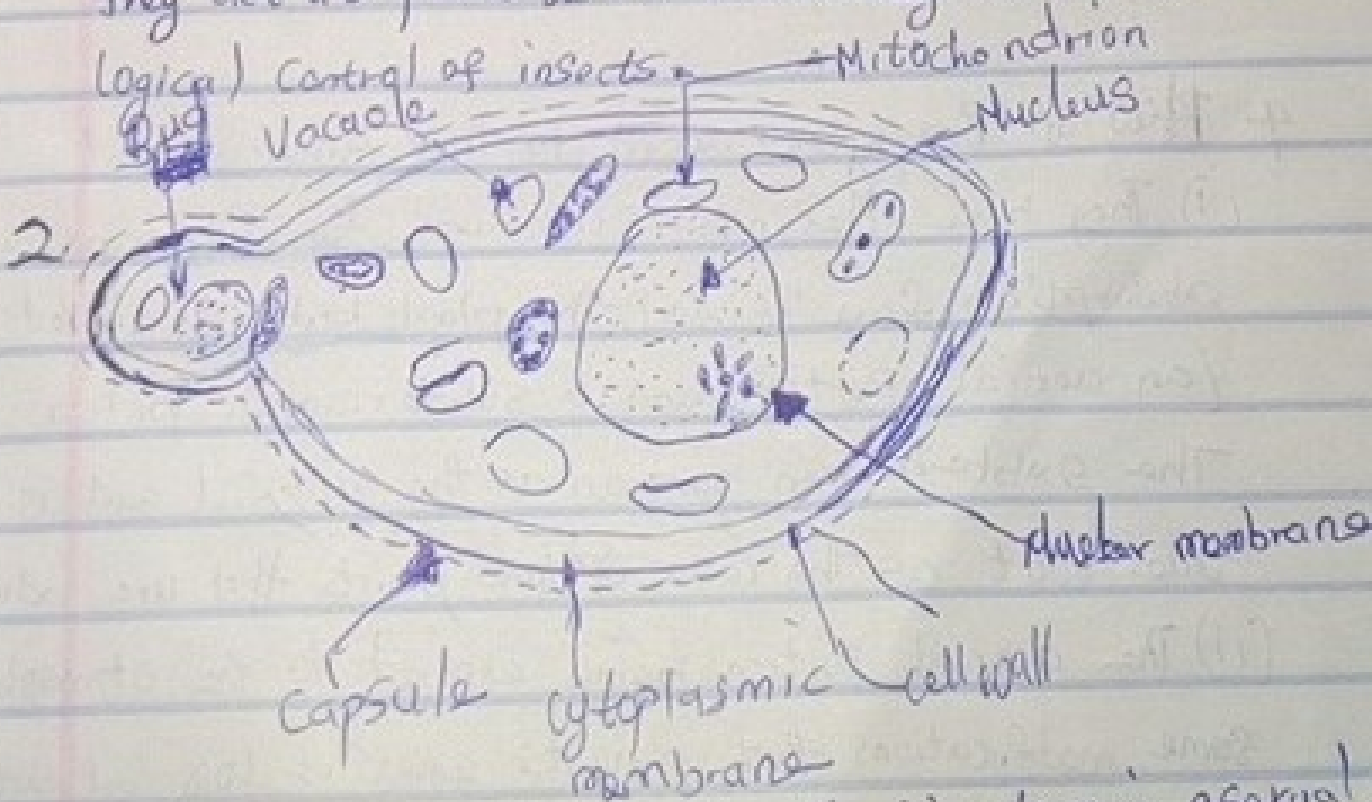 They
logical) Control of insects.
Mitochondrion
Nucleus
Bud
Vacaole
2.
Nuclear membrane
Capsule
Cytoplasmic
membrane
cell wall
asexual